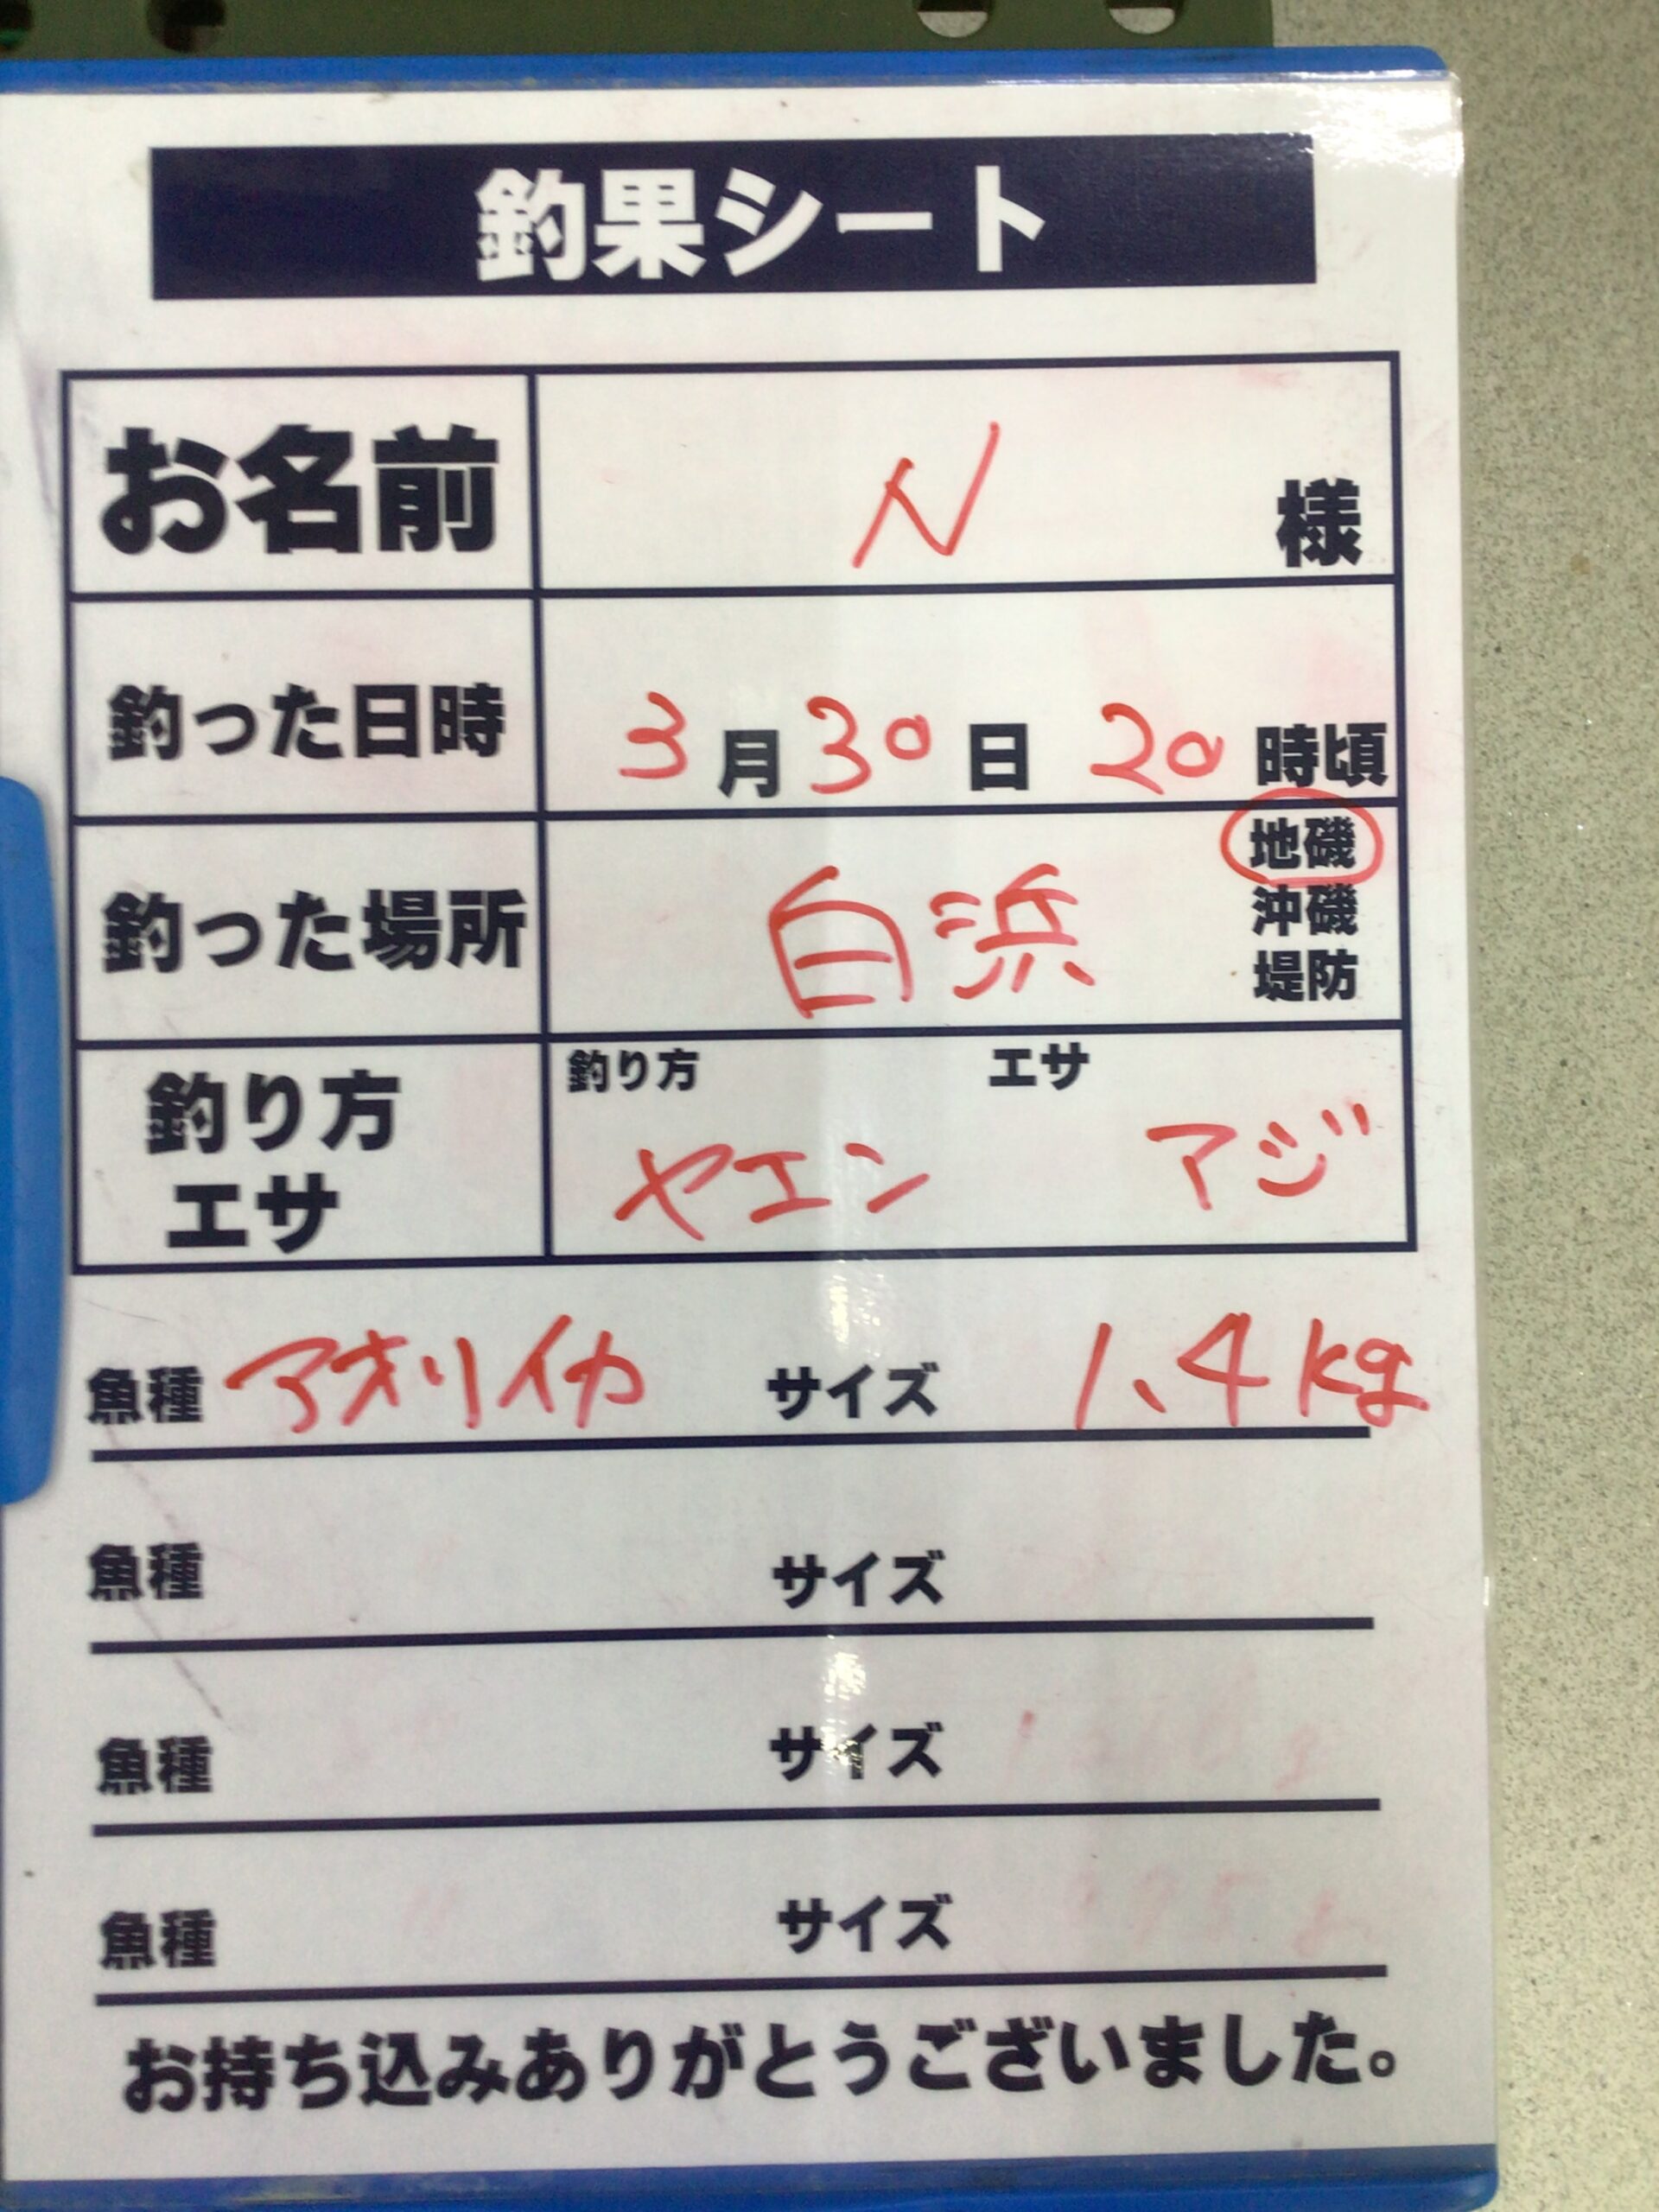 釣果シート
お名前 N 様
釣った日時 3月30日 20時頃
釣った場所 白浜 地磯
沖磯
堤防
釣り方 エサ
釣り方 ヤエン エサ アジ
魚種 アオリイカ サイズ 1.4kg
魚種 サイズ
魚種 サイズ
魚種 サイズ
お持ち込みありがとうございました。